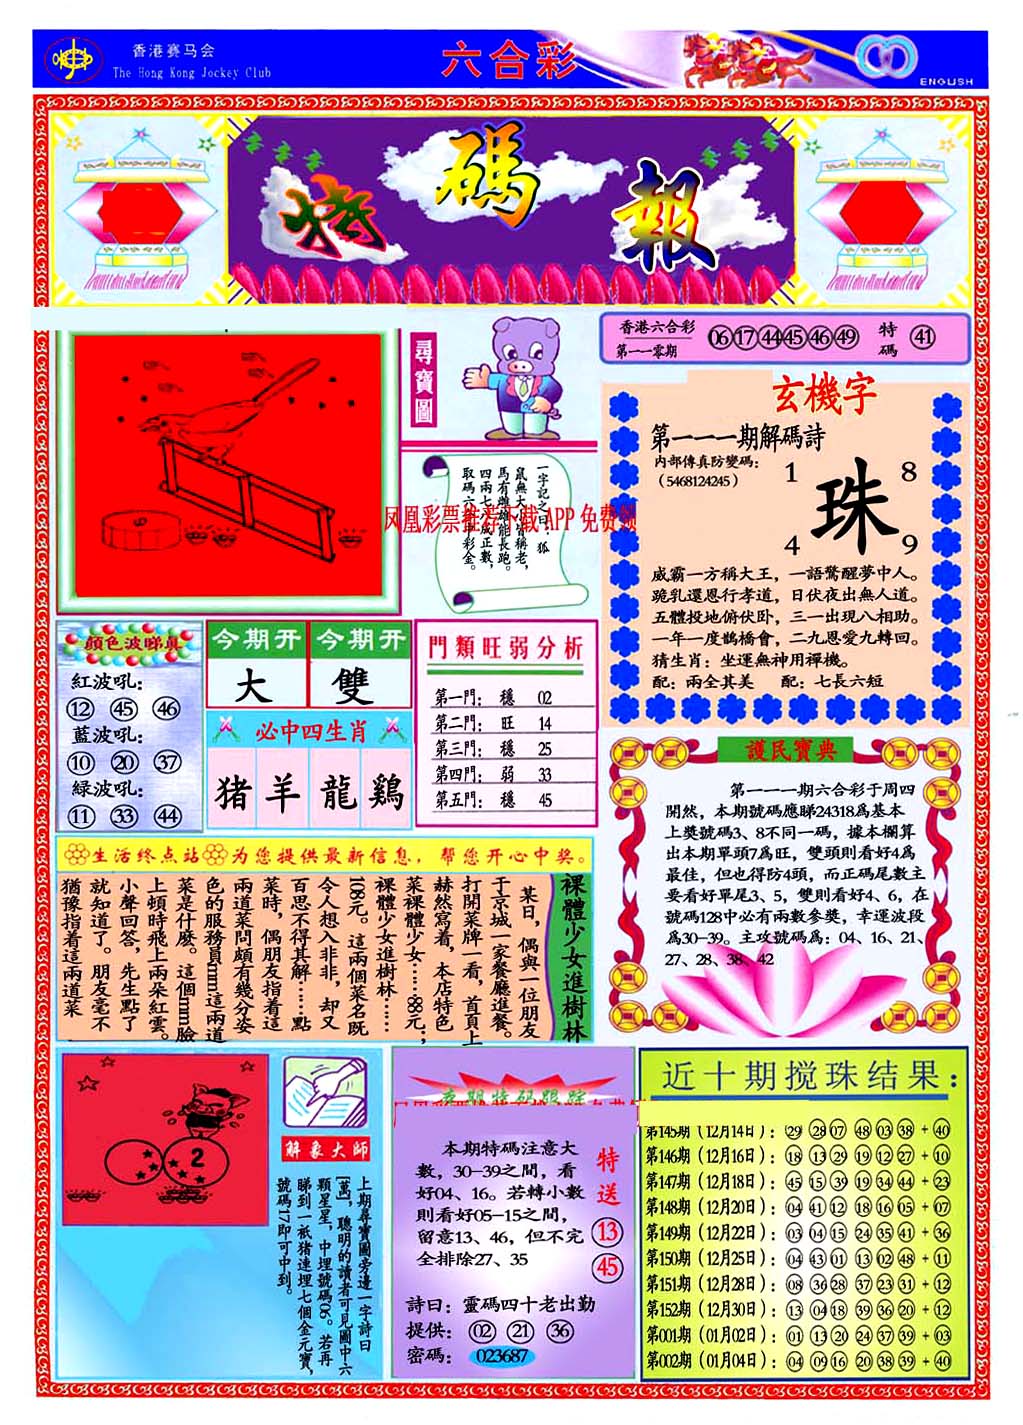 香港赛马会
The Hong Kong Jockey Club
六合彩
ENGLISH
特碼報
尋寶圖
香港六合彩
第一一零期
06 17 44 45 46 49
特碼
41
玄機字
第一一一期解碼詩
内部傳真防變碼：
（5468124245）
1 8
珠
4 9
威霸一方稱大王，一語驚醒夢中人。
跪乳還恩行孝道，日伏夜出無人道。
五體投地俯伏卧，三一出現八相助。
一年一度鵲橋會，二九恩愛九轉回。
猜生肖：坐運無神用禪機。
配：兩全其美 配：七長六短
一字記之曰：狐
鼠無大小皆稱老，
馬有雌雄能長跑。
四兩七八成正數，
取碼六合中彩金。
凤凰彩票推荐下载 APP 免费领
顏色波睇真
紅波吼：
12 45 46
藍波吼：
10 20 37
緑波吼：
11 33 44
今期开 今期开
大 雙
必中四生肖
猪 羊 龍 鷄
門類旺弱分析
第一門： 穩 02
第二門： 旺 14
第三門： 穩 25
第四門： 弱 33
第五門： 穩 45
護民寶典
第一一一期六合彩于周四
開然，本期號碼應睇24318爲基本
上獎號碼3、8不同一碼，據本欄算
出本期單頭7爲旺，雙頭則看好4爲
最佳，但也得防4頭，而正碼尾數主
要看好單尾3、5，雙則看好4、6，在
號碼128中必有兩數參獎，幸運波段
爲30-39。主攻號碼爲：04、16、21、
27、28、38、42
生活终点站 为您提供最新信息，帮您开心中奖。
裸體少女進樹林
某日，偶與一位朋友
于京城一家餐廳進餐。
打開菜牌一看，首頁上
赫然寫着，本店特色
菜裸體少女……88元；
裸體少女進樹林……
108元。這兩個菜名既
令人想入非非，却又
百思不得其解……點
菜時，偶朋友指着這
兩道菜問頗有幾分姿
色的服務員mm這兩道
菜是什麽。這個mm臉
上頓時飛上兩朵紅雲。
小聲回答，先生點了
就知道了。朋友毫不
猶豫指着這兩道菜
2
解象大師
上期尋寶圖旁邊一字詩曰
[萬]，聰明的讀者可見圖中六
顆星星，中埋號碼06。若再
睇到一衹猪連埋七個金元寶，
號碼17即可中到。
本期特码跟踪
本期特碼注意大
數，30-39之間，看
好04、16。若轉小數
則看好05-15之間，
留意13、46，但不完
全排除27、35
特送
13
45
詩曰：靈碼四十老出勤
提供： 02 21 36
密碼： 023687
近十期搅珠结果：
第145期（12月14日）：29 28 07 48 03 38 + 40
第146期（12月16日）：18 13 29 19 12 27 + 10
第147期（12月18日）：45 15 39 19 34 44 + 23
第148期（12月20日）：04 41 12 18 16 05 + 07
第149期（12月22日）：03 04 15 24 35 41 + 36
第150期（12月25日）：04 43 01 13 02 48 + 11
第151期（12月28日）：08 36 28 37 23 31 + 12
第152期（12月30日）：13 04 18 39 36 20 + 12
第001期（01月02日）：01 13 20 24 37 39 + 03
第002期（01月04日）：04 09 16 20 38 39 + 40